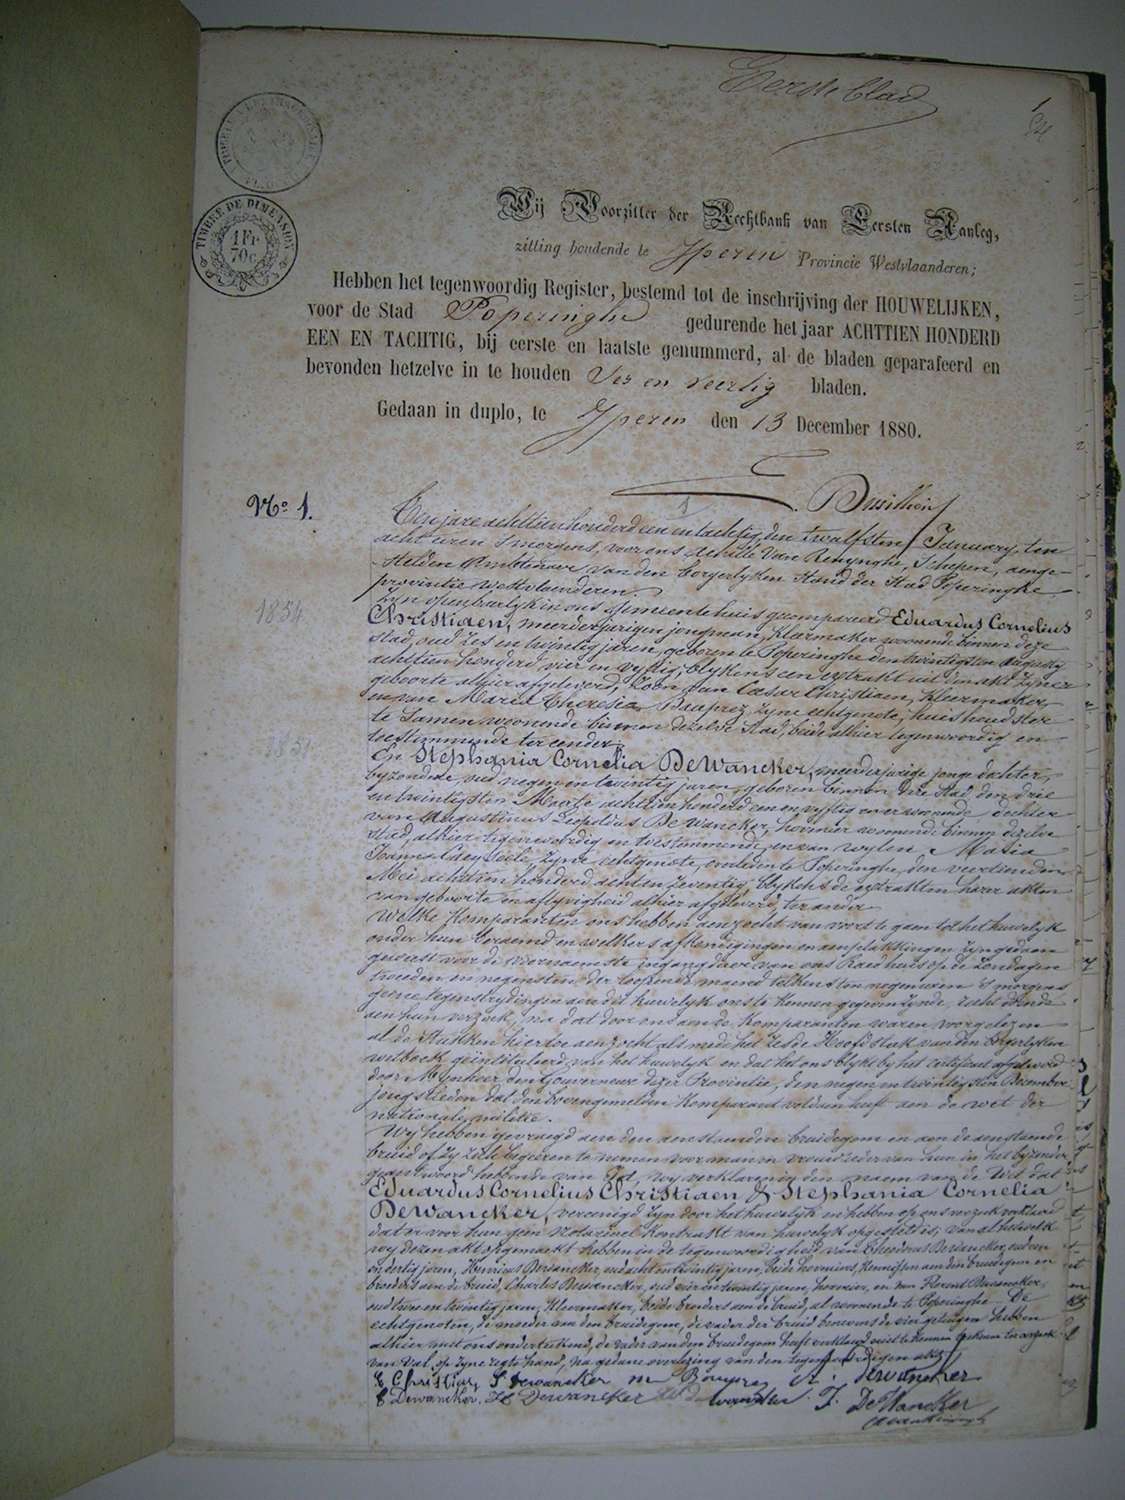 Eerste blad
1
TIMBRE DE DIMENSION
1 Fr
70 c
Wij Voorzitter der Rechtbank van Eersten Aanleg,
zitting houdende te Yperen Provincie Westvlaanderen;
Hebben het tegenwoordig Register, bestemd tot de inschrijving der HOUWELIJKEN,
voor de Stad Poperinghe gedurende het jaar ACHTTIEN HONDERD
EEN EN TACHTIG, bij eerste en laatste genummerd, al de bladen geparafeerd en
bevonden hetzelve in te houden Zes en veertig bladen.
Gedaan in duplo, te Yperen den 13 December 1880.
No 1.
Ten jare achttien honderd een en tachtig, den twalfsten January, ten
acht uren s'morgens, voor ons Achille Van Renynghe, Schepen, aenge-
stelden Ambtenaer van den borgerlyken Stand der Stad Poperinghe
provintie Westvlaenderen.
1854
Zyn openbaerlyk in ons gemeentehuis gecompareerd Eduardus Cornelius
Christiaen, meerderjarigen jongman, Kleermaker woonende binnen deze
stad, oud zes en twintig jaren, geboren te Poperinghe den twintigsten Augusty
achttien honderd vier en vyftig, blykens een extrakt uit den akt zyner
geboorte alhier afgeleverd, zoon van Cæsar Christiaen, Kleermaker,
en van Maria Theresia Beauprez zyne echtgenote, huishoudster
te samen woonende binnen dezelve stad, beide alhier tegenwoordig en
toestemmende ter eender
1851
En Stephania Cornelia DeWancker, meerderjarige jonge dochter,
byzondere oud negen en twintig jaren, geboren binnen deze stad den drie
en twintigsten Maerte achttien honderd een en vyftig en er woonende dochter
van Augustinus Leopoldus DeWancker, hovenier woonende binnen dezelve
stad, alhier tegenwoordig en toestemmende, en van wylen Maria
Joanna zyne echtgenote, overleden te Poperinghe, den veertienden
Mei achttien honderd acht en zeventig, blykens de extrakten harer akten
van geboorte en aflyvigheid alhier afgeleverd, ter ander
Welke Komparanten ons hebben aenzocht van voorts te gaen tot het huwelyk
onder hun beraemd en welkers afkondigingen en aenplakkingen zyn gedaen
geweest voor de voornaemste ingangdeure van ons Raedhuis op de Zondagen
tweeden en negensten der loopende maend telkens ten negen uren s'morgens
geene tegenstrydingen aen dit huwelyk ons te kennen gegeven zynde, recht doende
aen hun verzoek, na dat door ons aen de Komparanten waren voorgelezen
al de stukken hiertoe aenzocht als mede het zesde Hoofdstuk van den borgerlyken
wetboek geïntituleerd van het huwelyk en dat het ons blykt by het certificaet afgeleverd
door Mynheer den Gouverneur dezer Provintie, den negen en twintigsten December
jongstleden dat den bovengemelden Komparand voldaen heeft aen de wet der
nationale militie.
Wy hebben gevraegd aen den aenstaenden bruidegom en aen de aenstaende
bruid of zy zelve begeeren te nemen voor man en vrouw ieder van hun in het byzonder
geantwoord hebbende van Ja, wy verklaren in den naem van de Wet dat
Eduardus Cornelius Christiaen & Stephania Cornelia
DeWancker, vereenigd zyn door het huwelyk en hebben op ons verzoek verklaerd
dat er voor hun geen Notarieel Kontrakt van huwelyk opgesteld is; van al hetwelk
wy dezen akt opgemaekt hebben in de tegenwoordigheid van Theodorus Dewancker, oud een
en dertig jaren, Henricus Dewancker, oud acht en twintig jaren, beide hoveniers, Kennissen aen den bruidegom en
broeders aen de bruid, Charles Dewancker, oud vier en twintig jaren, hovenier, en van Florent Dewancker,
oud twee en twintig jaren, Kleermaker, beide broeders aen de bruid, al woonende te Poperinghe. De
echtgenoten, de moeder van den bruidegom, de vader der bruid benevens de vier getuigen hebben
alhier met ons onderteekend, de vader van den bruidegom heeft verklaerd niet te kunnen
van val op zyne regte hand, na gedane overlezing van den tegenwoordigen akt
E Christiaen S Dewancker m Dewancker
C Dewancker. H Dewancker F. DeWancker